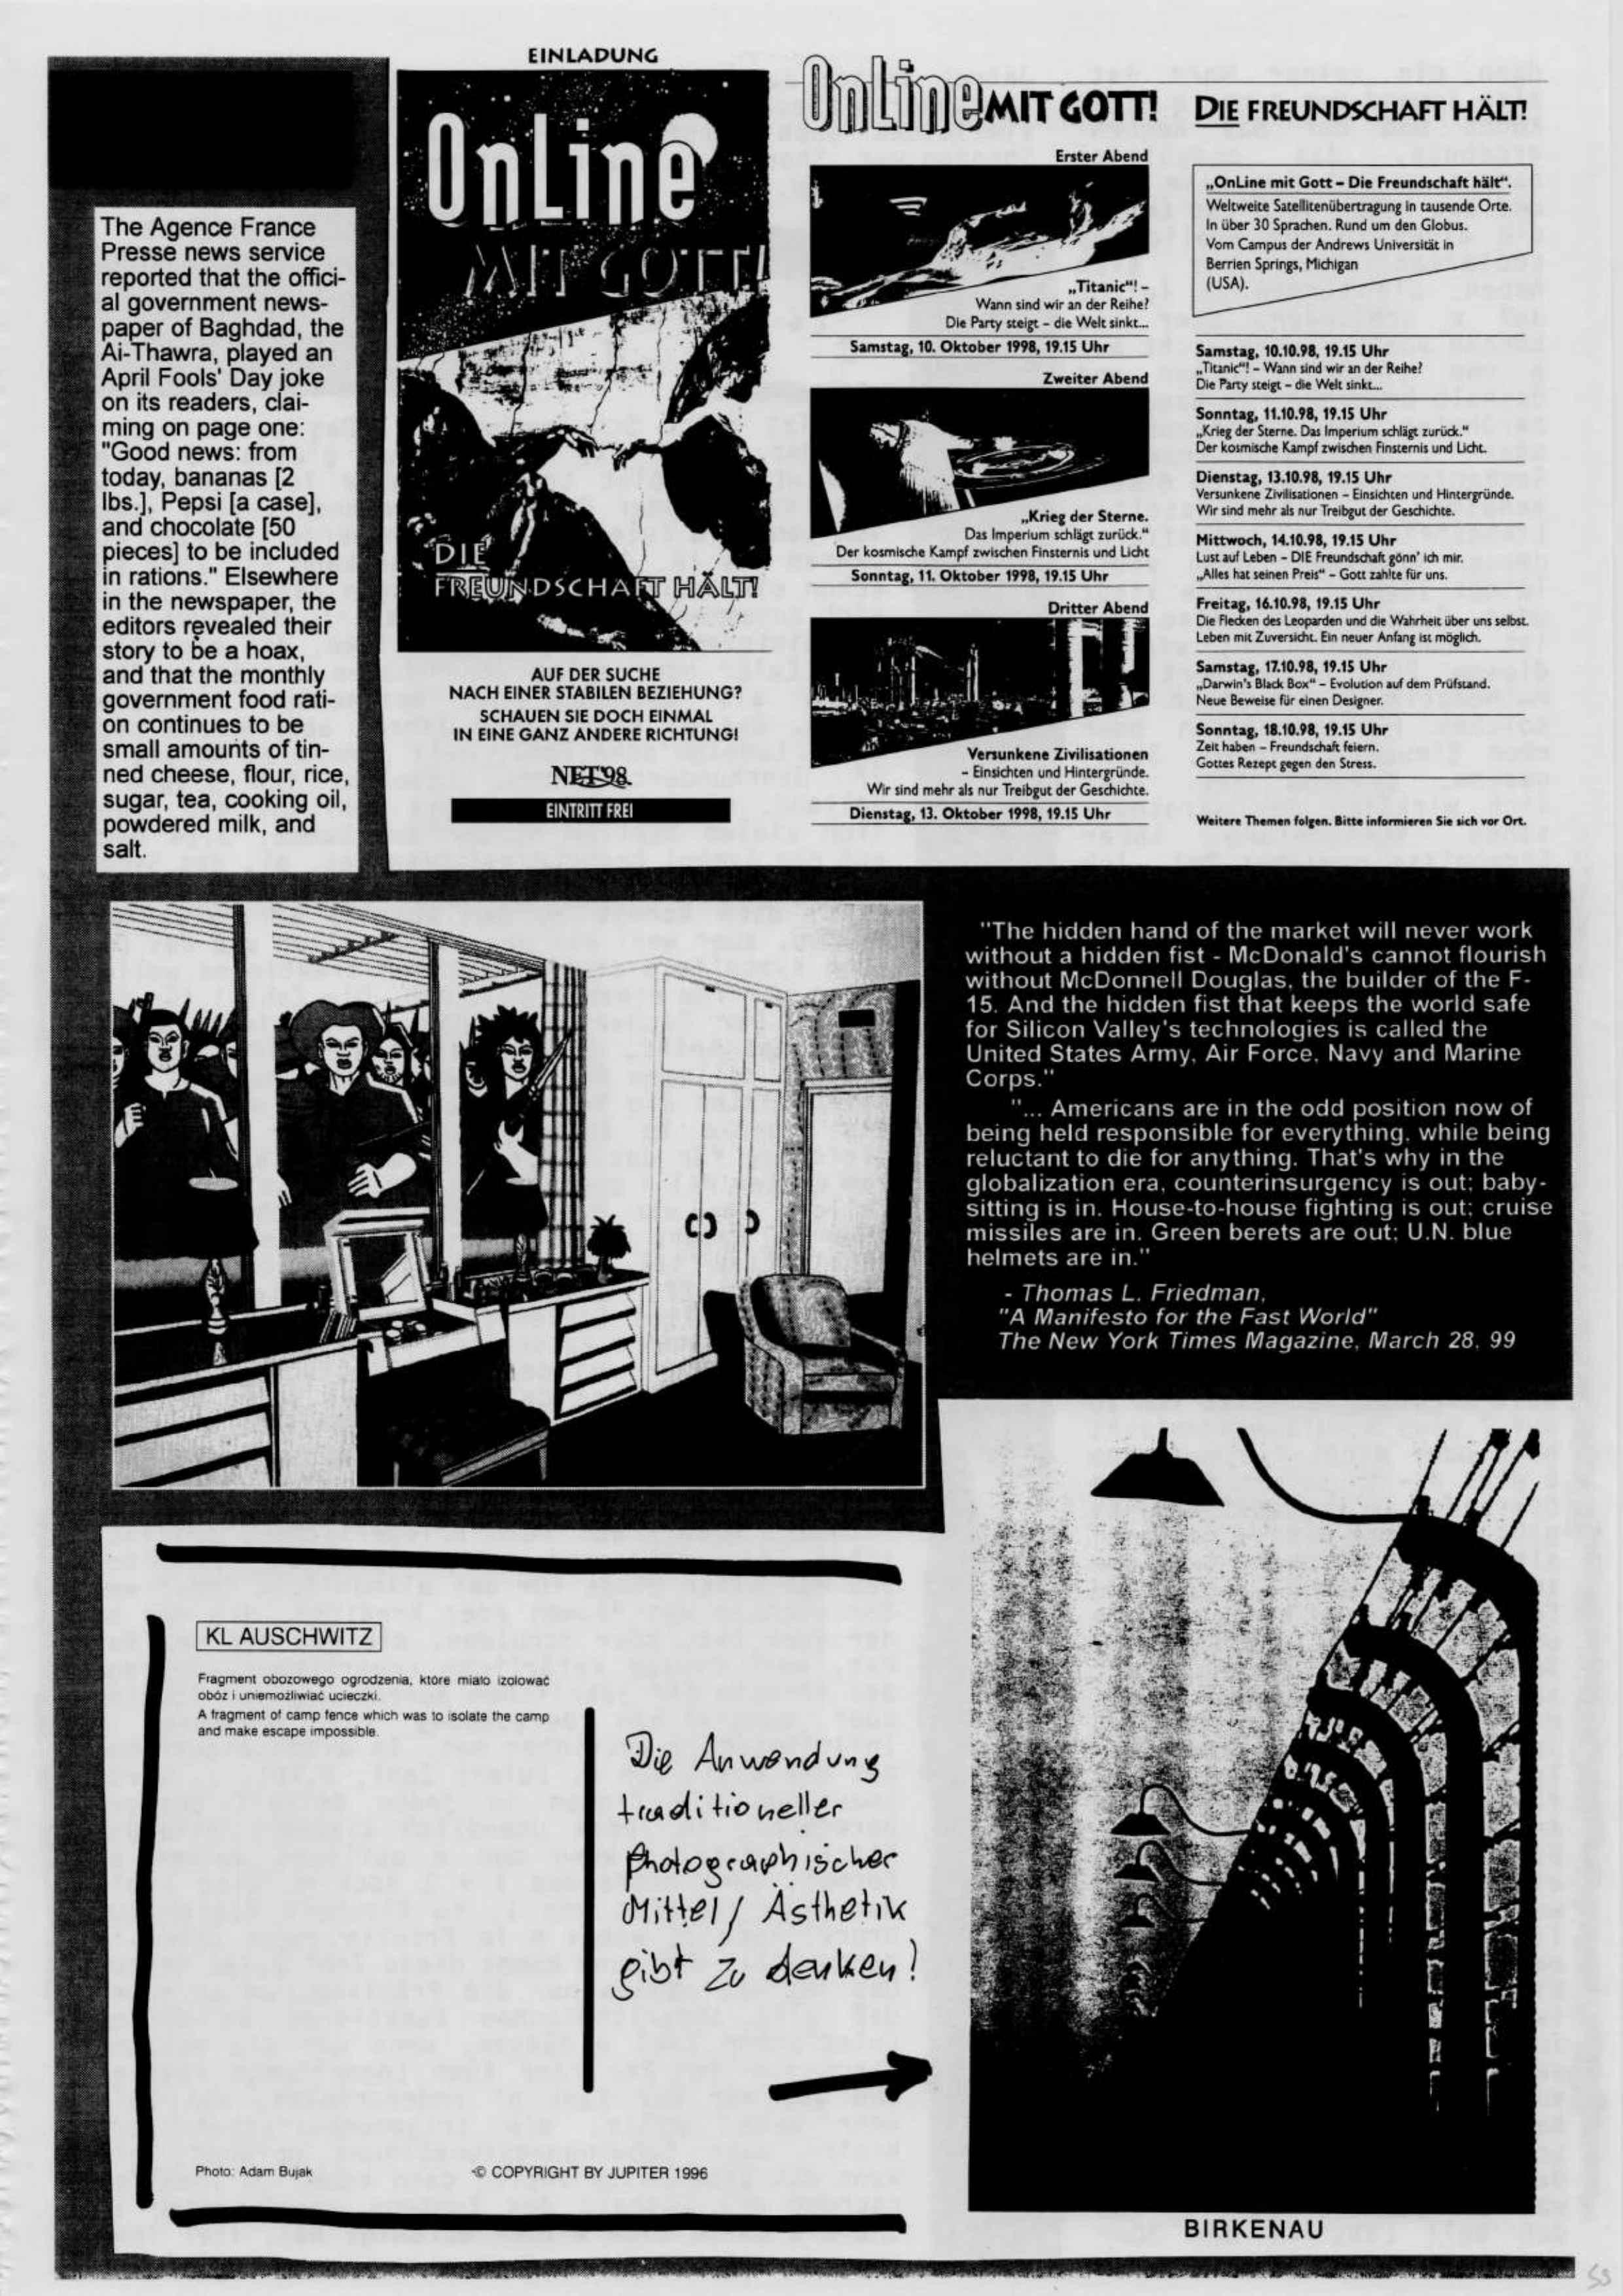 The Agence France
Presse news service
reported that the offici-
al government news-
paper of Baghdad, the
Al-Thawra, played an
April Fools' Day joke
on its readers, clai-
ming on page one:
"Good news: from
today, bananas [2
lbs.], Pepsi [a case],
and chocolate [50
pieces] to be included
in rations." Elsewhere
in the newspaper, the
editors revealed their
story to be a hoax,
and that the monthly
government food rati-
on continues to be
small amounts of tin-
ned cheese, flour, rice,
sugar, tea, cooking oil,
powdered milk, and
salt.
EINLADUNG
OnLine
MIT GOTT!
DIE
FREUNDSCHAFT HÄLT!
AUF DER SUCHE
NACH EINER STABILEN BEZIEHUNG?
SCHAUEN SIE DOCH EINMAL
IN EINE GANZ ANDERE RICHTUNG!
NET'98
EINTRITT FREI
OnLine MIT GOTT!
Erster Abend
„Titanic“! –
Wann sind wir an der Reihe?
Die Party steigt – die Welt sinkt...
Samstag, 10. Oktober 1998, 19.15 Uhr
Zweiter Abend
„Krieg der Sterne.
Das Imperium schlägt zurück.“
Der kosmische Kampf zwischen Finsternis und Licht
Sonntag, 11. Oktober 1998, 19.15 Uhr
Dritter Abend
Versunkene Zivilisationen
– Einsichten und Hintergründe.
Wir sind mehr als nur Treibgut der Geschichte.
Dienstag, 13. Oktober 1998, 19.15 Uhr
DIE FREUNDSCHAFT HÄLT!
„OnLine mit Gott – Die Freundschaft hält“.
Weltweite Satellitenübertragung in tausende Orte.
In über 30 Sprachen. Rund um den Globus.
Vom Campus der Andrews Universität in
Berrien Springs, Michigan
(USA).
Samstag, 10.10.98, 19.15 Uhr
„Titanic“! – Wann sind wir an der Reihe?
Die Party steigt – die Welt sinkt...
Sonntag, 11.10.98, 19.15 Uhr
„Krieg der Sterne. Das Imperium schlägt zurück.“
Der kosmische Kampf zwischen Finsternis und Licht.
Dienstag, 13.10.98, 19.15 Uhr
Versunkene Zivilisationen – Einsichten und Hintergründe.
Wir sind mehr als nur Treibgut der Geschichte.
Mittwoch, 14.10.98, 19.15 Uhr
Lust auf Leben – DIE Freundschaft gönn' ich mir.
„Alles hat seinen Preis“ – Gott zahlte für uns.
Freitag, 16.10.98, 19.15 Uhr
Die Flecken des Leoparden und die Wahrheit über uns selbst.
Leben mit Zuversicht. Ein neuer Anfang ist möglich.
Samstag, 17.10.98, 19.15 Uhr
„Darwin's Black Box“ – Evolution auf dem Prüfstand.
Neue Beweise für einen Designer.
Sonntag, 18.10.98, 19.15 Uhr
Zeit haben – Freundschaft feiern.
Gottes Rezept gegen den Stress.
Weitere Themen folgen. Bitte informieren Sie sich vor Ort.
"The hidden hand of the market will never work
without a hidden fist - McDonald's cannot flourish
without McDonnell Douglas, the builder of the F-
15. And the hidden fist that keeps the world safe
for Silicon Valley's technologies is called the
United States Army, Air Force, Navy and Marine
Corps."
"... Americans are in the odd position now of
being held responsible for everything, while being
reluctant to die for anything. That's why in the
globalization era, counterinsurgency is out; baby-
sitting is in. House-to-house fighting is out; cruise
missiles are in. Green berets are out; U.N. blue
helmets are in."
- Thomas L. Friedman,
"A Manifesto for the Fast World"
The New York Times Magazine, March 28, 99
KL AUSCHWITZ
Fragment obozowego ogrodzenia, które miało izolować
obóz i uniemożliwiać ucieczki.
A fragment of camp fence which was to isolate the camp
and make escape impossible.
Die Anwendung
traditioneller
photographischer
Mittel/ Ästhetik
gibt zu denken!
Photo: Adam Bujak
© COPYRIGHT BY JUPITER 1996
BIRKENAU
53